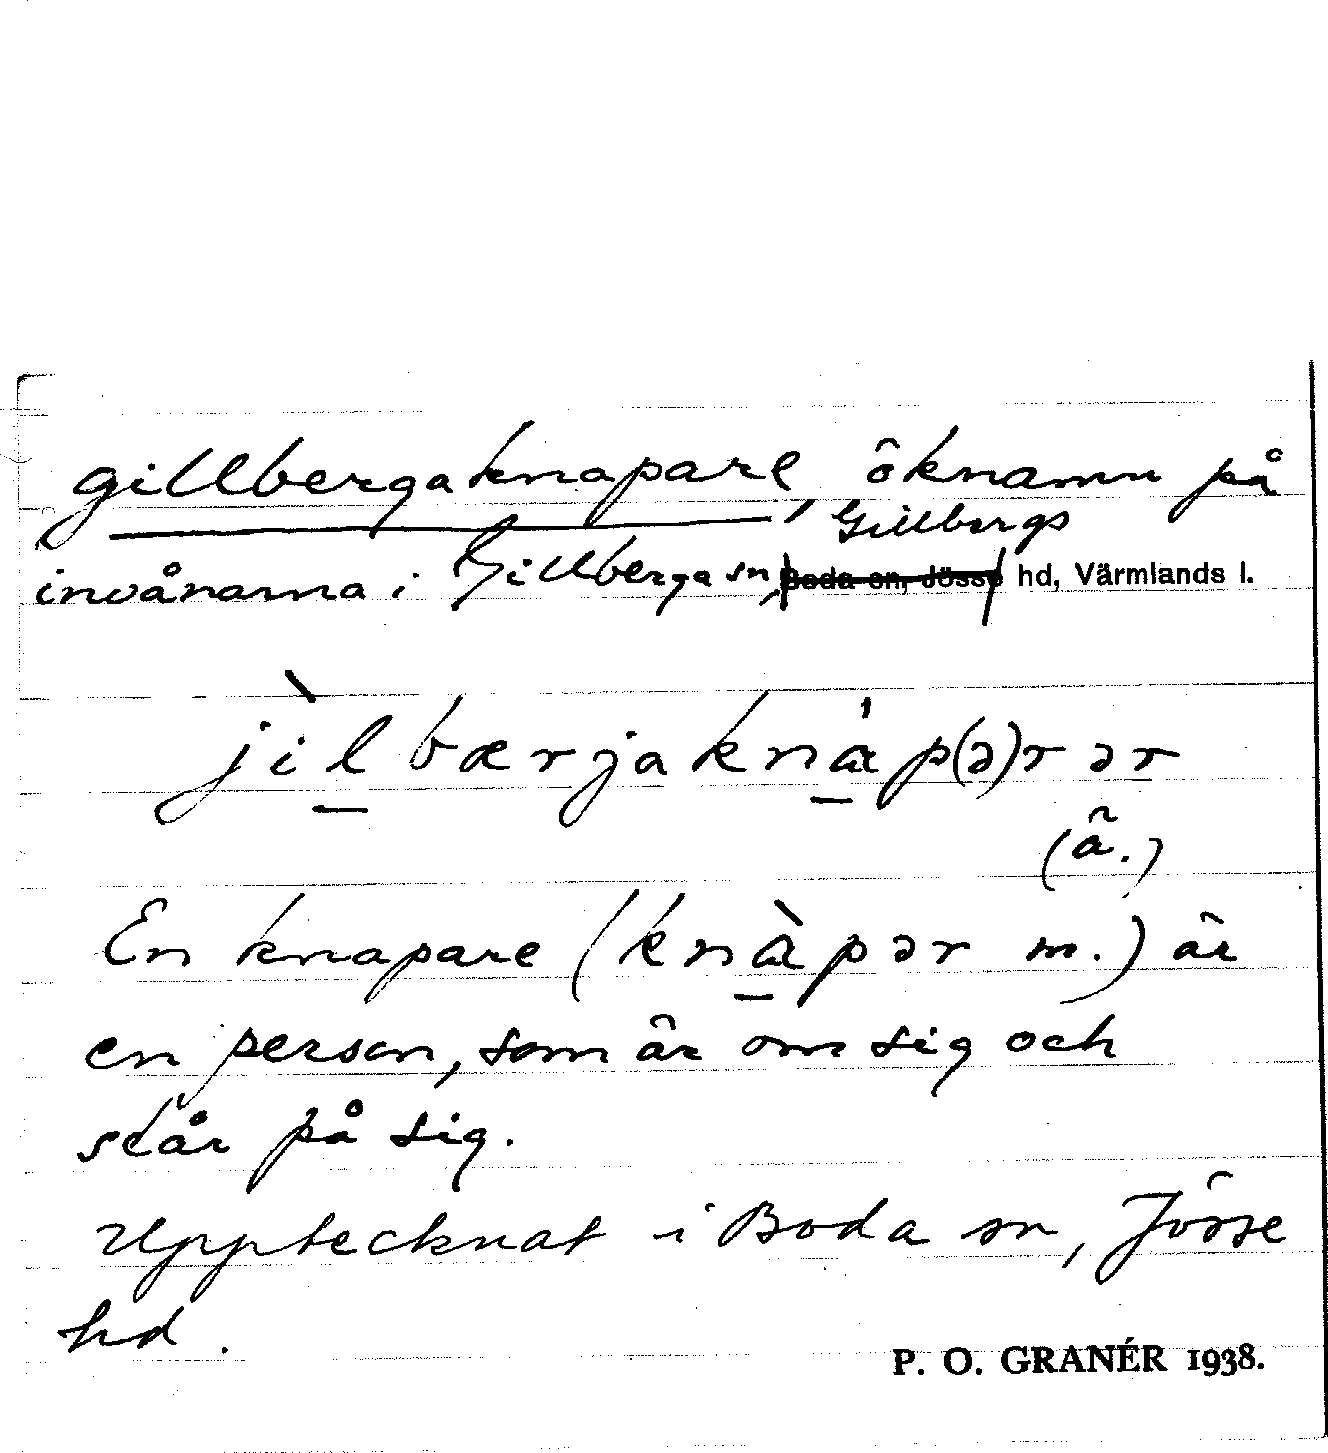 gillbergaknapare, öknamn på
Gillbergs
invånarna i Gillberga sn, Boda sn, Jösse hd, Värmlands l.
jìl̲bærjakná̲p(ə)rər
(ä.)
En knapare (knà̲pər m.) är
en person, som är om sig och
slår på sig.
Upptecknat i Boda sn, Jösse
hd.
P. O. GRANÉR 1938.